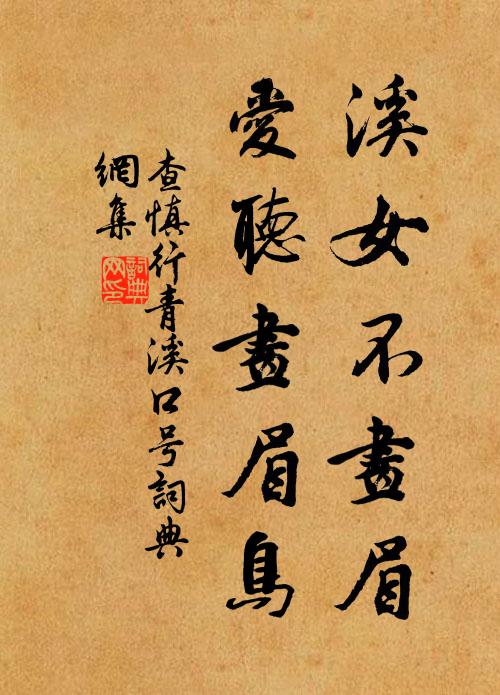 溪女不畫眉
愛聽畫眉鳥
查慎行青溪口号詞典
網集
詞典網印